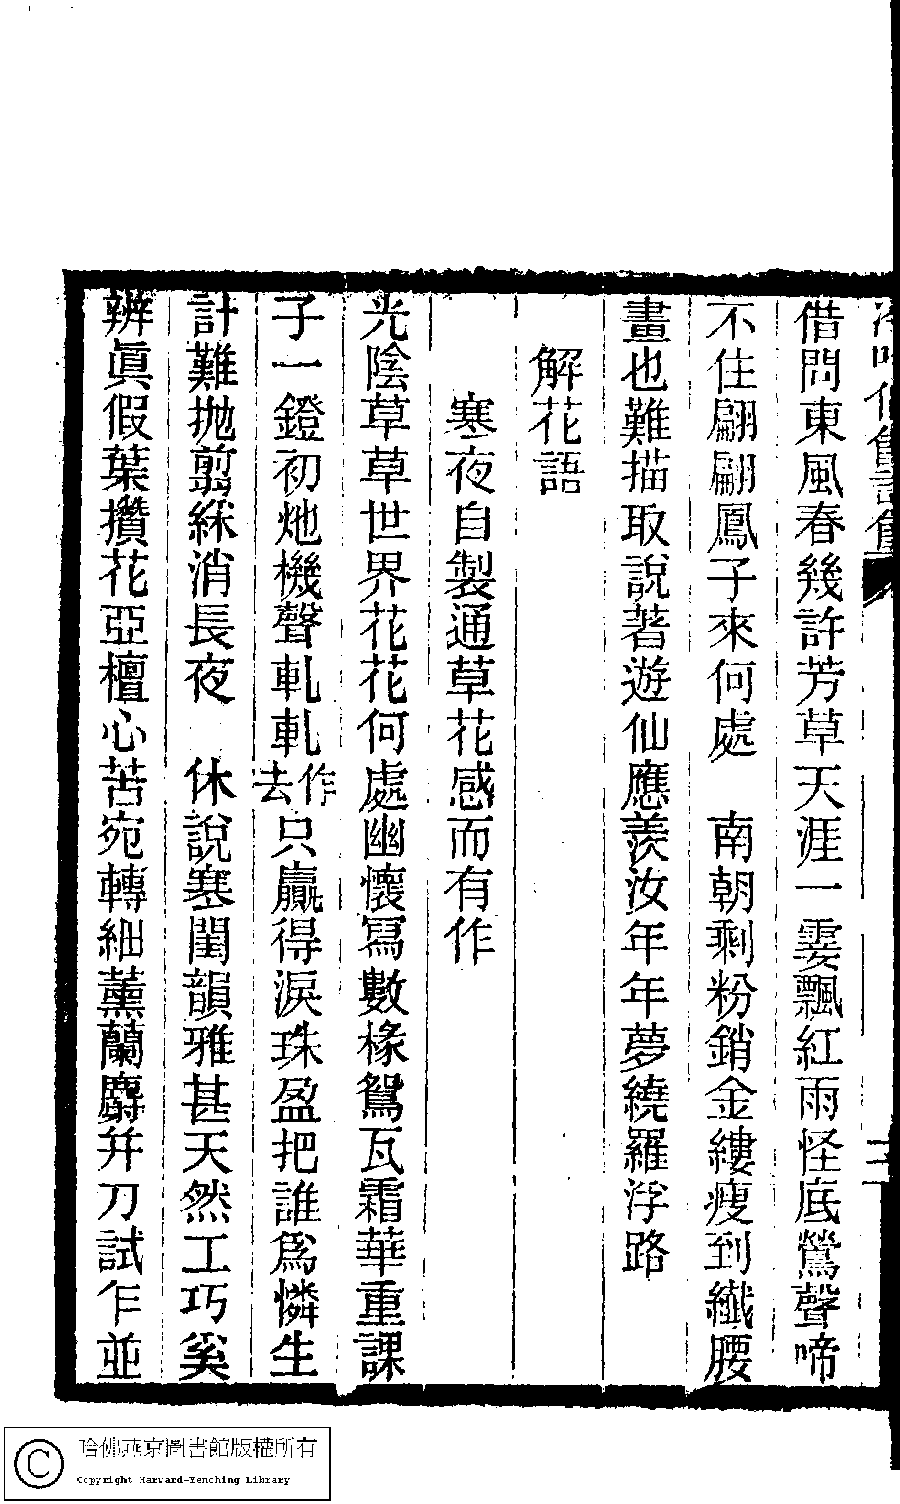 借問東風春幾許芳草天涯一霎飄紅雨怪底鶯聲啼
不住翩翩鳳子來何處　南朝剩粉銷金縷瘦到纖腰
畫也難描取說著遊仙應羨汝年年夢繞羅浮路
解花語
寒夜自製通草花感而有作
光陰草草世界花花何處幽懷寫數椽鴛瓦霜華重課
子一鐙初灺機聲軋軋作去只贏得淚珠盈把誰爲憐生
計難抛剪綵消長夜　休說寒閨韻雅甚天然工巧奚
辨眞假葉攢花亞檀心苦宛轉細薰蘭麝并刀試乍並
哈佛燕京圖書館版權所有
Copyright Harvard-Yenching Library